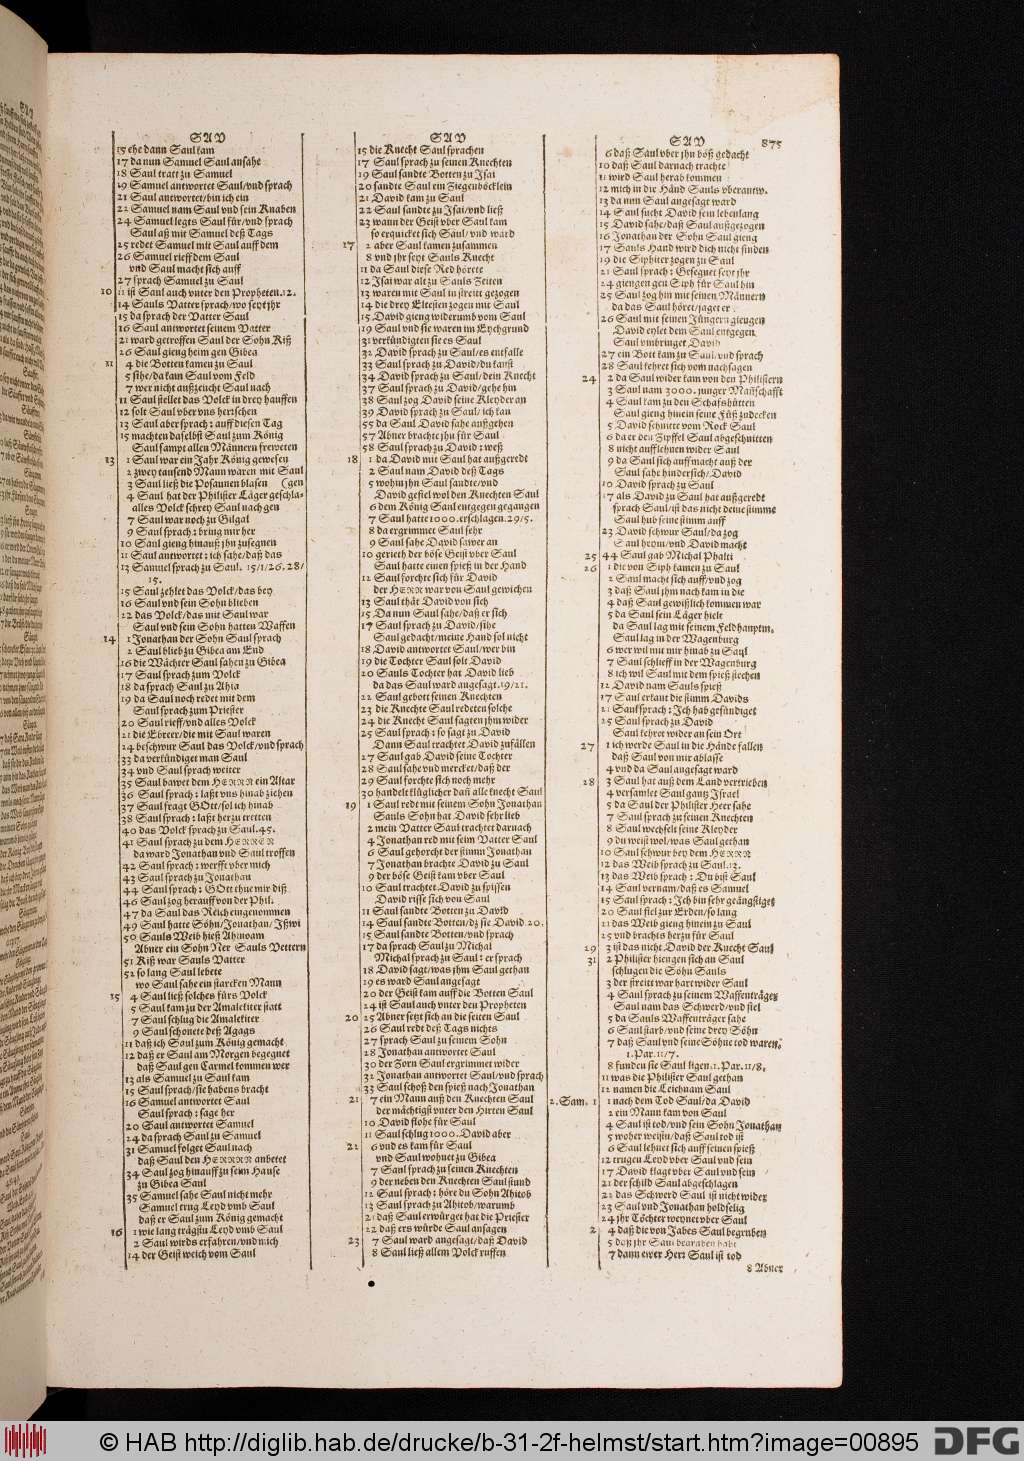 SAV
15 ehe dann Saul kam
17 da nun Samuel Saul ansahe
18 Saul tratt zu Samuel
19 Samuel antwortet Saul/vnd sprach
21 Saul antwortet/bin ich ein
22 Samuel nam Saul vnd sein Knaben
24 Samuel legts Saul für/vnd sprach
Saul aß mit Samuel deß Tags
25 redet Samuel mit Saul auff dem
26 Samuel rieff dem Saul
vnd Saul macht sich auff
27 sprach Samuel zu Saul
10 11 ist Saul auch vnter den Propheten.12.
14 Sauls Vatter sprach/wo seyt jhr
15 da sprach der Vatter Saul
16 Saul antwortet seinem Vatter
21 ward getroffen Saul der Sohn Kiß
26 Saul gieng heim gen Gibea
11 4 die Botten kamen zu Saul
5 sihe/da kam Saul vom Feld
7 wer nicht außzeucht Saul nach
11 Saul stellet das Volck in drey hauffen
12 solt Saul vber vns herrschen
13 Saul aber sprach: auff diesen Tag
15 machten daselbst Saul zum König
Saul sampt allen Männern freweten
13 1 Saul war ein Jahr König gewesen
2 zwey tausend Mann waren mit Saul
3 Saul ließ die Posaunen blasen (gen
4 Saul hat der Philister Läger geschla-
alles Volck schrey Saul nach gen
7 Saul war noch zu Gilgal
9 Saul sprach: bring mir her
10 Saul gieng hinauß jhn zusegnen
11 Saul antwortet: ich sahe/daß das
13 Samuel sprach zu Saul. 15/1/26.28/
15.
15 Saul zehlet das Volck/das bey
16 Saul vnd sein Sohn blieben
22 das Volck/das mit Saul war
Saul vnd sein Sohn hatten Waffen
14 1 Jonathan der Sohn Saul sprach
2 Saul blieb zu Gibea am End
16 die Wächter Saul sahen zu Gibea
17 Saul sprach zum Volck
18 da sprach Saul zu Ahia
19 da Saul noch redet mit dem
Saul sprach zum Priester
20 Saul rieff/vnd alles Volck
21 die Ebreer/die mit Saul waren
24 beschwur Saul das Volck/vnd sprach
33 da verkündiget man Saul
34 vnd Saul sprach weiter
35 Saul bawet dem HERRN ein Altar
36 Saul sprach: laßt vns hinab ziehen
37 Saul fragt GOtt/sol ich hinab
38 Saul sprach: laßt her zu tretten
40 das Volck sprach zu Saul.45.
41 Saul sprach zu dem HERREN
da ward Jonathan vnd Saul troffen
42 Saul sprach: werfft vber mich
43 Saul sprach zu Jonathan
44 Saul sprach: GOtt thue mir diß
46 Saul zog herauff von der Phil.
47 da Saul das Reich eingenommen
49 Saul hatte Söhn/Jonathan/Ißwi
50 Sauls Weib hieß Ahinoam
Abner ein Sohn Ner Sauls Vettern
51 Kiß war Sauls Vatter
52 so lang Saul lebete
wo Saul sahe ein starcken Mann
15 4 Saul ließ solches fürs Volck
5 Saul kam zu der Amalekiter statt
7 Saul schlug die Amalekiter
9 Saul schonete deß Agags
11 daß ich Saul zum König gemacht
12 daß er Saul am Morgen begegnet
daß Saul gen Carmel kommen wer
13 als Samuel zu Saul kam
15 Saul sprach/sie habens bracht
16 Samuel antwortet Saul
Saul sprach: sage her
20 Saul antwortet Samuel
24 da sprach Saul zu Samuel
31 Samuel folget Saul nach
daß Saul den HERRN anbetet
34 Saul zog hinauff zu seim Hause
zu Gibea Saul
35 Samuel sahe Saul nicht mehr
Samuel trug Leyd vmb Saul
daß er Saul zum König gemacht
16 1 wie lang trägstu Leyd vmb Saul
2 Saul wirds erfahren/vnd mich
14 der Geist weich vom Saul
SAV
15 die Knecht Saul sprachen
17 Saul sprach zu seinen Knechten
19 Saul sandte Botten zu Isai
20 sandte Saul ein Ziegenböcklein
21 David kam zu Saul
22 Saul sandte zu Isai/vnd ließ
23 wann der Geist vber Saul kam
so erquicket sich Saul/vnd ward
17 2 aber Saul kamen zusammen
8 vnd jhr seyt Sauls Knecht
11 da Saul diese Red hörete
12 Isai war alt zu Sauls Zeiten
13 waren mit Saul in streitt gezogen
14 die drey Eltesten zogen mit Saul
15 David gieng widerumb vom Saul
19 Saul vnd sie waren im Eychgrund
31 verkündigten sie es Saul
32 David sprach zu Saul/es entfalle
33 Saul sprach zu David/du kanst
34 David sprach zu Saul/dein Knecht
37 Saul sprach zu David/gehe hin
38 Saul zog David seine Kleyder an
39 David sprach zu Saul/ich kan
55 da Saul David sahe außgehen
57 Abner brachte jhn für Saul
58 Saul sprach zu David: weß
18 1 da David mit Saul hat außgeredt
2 Saul nam David deß Tags
5 wohin jhn Saul sandte/vnd
David gefiel wol den Knechten Saul
6 dem König Saul entgegen gegangen
7 Saul hatte 1000.erschlagen.29/5.
8 da ergrimmet Saul sehr
9 Saul sahe David sawer an
10 gerieth der böse Geist vber Saul
Saul hatte einen spieß in der Hand
12 Saul forchte sich für David
der HERR war von Saul gewichen
13 Saul thät David von sich
15 Da nun Saul sahe/daß er sich
17 Saul sprach zu David/sihe
Saul gedacht/meine Hand sol nicht
18 David antwortet Saul/wer bin
19 die Tochter Saul solt David
20 Sauls Tochter hat David lieb
da das Saul ward angesagt.19/21.
22 Saul gebott seinen Knechten
23 die Knechte Saul redeten solche
24 die Knecht Saul sagten jhm wider
25 Saul sprach: so sagt zu David
Dann Saul trachtet David zufällen
27 Saul gab David seine Tochter
28 Saul sahe vnd mercket/daß der
29 Saul forchte sich noch mehr
30 handelt klüglicher dañ alle knecht Saul
19 1 Saul redt mit seinem Sohn Jonathan
Sauls Sohn hat David sehr lieb
2 mein Vatter Saul trachtet darnach
4 Jonathan red mit seim Vatter Saul
6 Saul gehorcht der stimm Jonathan
7 Jonathan brachte David zu Saul
9 der böse Geist kam vber Saul
10 Saul trachtet David zu spissen
David risse sich von Saul
11 Saul sandte Botten zu David
14 Saul sandte Botten/dz sie David.20.
15 Saul sandte Botten/vnd sprach
17 da sprach Saul zu Michal
Michal sprach zu Saul: er sprach
18 David sagt/was jhm Saul gethan
19 es ward Saul angesagt
20 der Geist kam auff die Botten Saul
24 ist Saul auch vnter den Propheten
20 25 Abner setzt sich an die seiten Saul
26 Saul redt deß Tags nichts
27 sprach Saul zu seinem Sohn
28 Jonathan antwortet Saul
30 der Zorn Saul ergrimmet wider
32 Jonathan antwortet Saul/vnd sprach
33 Saul schoß den spieß nach Jonathan
21 7 ein Mann auß den Knechten Saul
der mächtigst vnter den Hirten Saul
10 David flohe für Saul
11 Saul schlug 1000. David aber
22 6 vnd es kam für Saul
vnd Saul wohnet zu Gibea
7 Saul sprach zu seinen Knechten
9 der neben den Knechten Saul stund
12 Saul sprach: höre du Sohn Ahitob
13 Saul sprach zu Ahitob/warumb
21 daß Saul erwürget hat die Priester
22 daß ers würde Saul ansagen
23 7 Saul ward angesagt/daß David
8 Saul ließ allem Volck ruffen
SAV 875
6 daß Saul vber jhn böß gedacht
10 daß Saul darnach trachte
11 wird Saul herab kommen
12 mich in die Händ Sauls vberantw.
13 da nun Saul angesagt ward
14 Saul sucht David sein lebenlang
15 David sahe/daß Saul außgezogen
16 Jonathan der Sohn Saul gieng
17 Sauls Hand wird dich nicht finden
19 die Siphiter zogen zu Saul
21 Saul sprach: Gesegnet seyt jhr
24 giengen gen Siph für Saul hin
25 Saul zog hin mit seinen Männern
da das Saul höret/jaget er
26 Saul mit seinen Jüngern giengen
David eylet dem Saul entgegen
Saul vmbringet David
27 ein Bott kam zu Saul/vnd sprach
28 Saul kehret sich vom nachjagen
24 2 da Saul wider kam von den Philistern
3 Saul nam 3000. junger Mañschafft
4 Saul kam zu den Schafshütten
Saul gieng hinein seine Füß zudecken
5 David schnitte vom Rock Saul
6 da er den Zipffel Saul abgeschnitten
8 nicht aufflehnen wider Saul
9 da Saul sich auffmacht auß der
Saul sahe hindersich/David
10 David sprach zu Saul
17 als David zu Saul hat außgeredt
sprach Saul/ist das nicht deine stimme
Saul hub seine stimm auff
23 David schwur Saul/da zog
Saul heym/vnd David macht
25 44 Saul gab Michal Phalti
26 1 die von Siph kamen zu Saul
2 Saul macht sich auff/vnd zog
3 daß Saul jhm nach kam in die
4 daß Saul gewißlich kommen war
5 da Saul sein Läger hielt
da Saul lag mit seinem Feldhauptm.
Saul lag in der Wagenburg
6 wer wil mit mir hinab zu Saul
7 Saul schlieff in der Wagenburg
8 ich wil Saul mit dem spieß stechen
12 David nam Sauls spieß
17 Saul erkant die stimm Davids
21 Saul sprach: Ich hab gesündiget
25 Saul sprach zu David
Saul kehrt wider an sein Ort
27 1 ich werde Saul in die Hände fallen
daß Saul von mir ablasse
4 vnd da Saul angesagt ward
28 3 Saul hat auß dem Land vertrieben
4 versamlet Saul gantz Israel
5 da Saul der Philister Heer sahe
7 Saul sprach zu seinen Knechten
8 Saul wechselt seine Kleyder
9 du weist wol/was Saul gethan
10 Saul schwur bey dem HERRN
12 das Weib sprach zu Saul.13.
13 das Weib sprach: Du bist Saul
14 Saul vernam/daß es Samuel
15 Saul sprach: Ich bin sehr geängstiget
20 Saul fiel zur Erden/so lang
21 das Weib gieng hinein zu Saul
25 vnd brachts herzu für Saul
29 3 ist das nicht David der Knecht Saul
31 2 Philister hiengen sich an Saul
schlugen die Söhn Sauls
3 der streitt war hart wider Saul
4 Saul sprach zu seinem Waffenträger
Saul nam das Schwerd/vnd fiel
5 da Sauls Waffenträger sahe
6 Saul starb/vnd seine drey Söhn
7 daß Saul vnd seine Söhne tod waren.
1.Par.11/7.
8 funden sie Saul ligen.1.Par.11/8.
11 was die Philister Saul gethan
12 namen die Leichnam Saul
2.Sam. 1 1 nach dem Tod Saul/da David
2 ein Mann kam von Saul
4 Saul ist tod/vnd sein Sohn Jonathan
5 woher weistu/daß Saul tod ist
6 Saul lehnet sich auff seinen spieß
12 trugen Leyd vber Saul vnd sein
17 David klagt vber Saul vnd sein
21 der schild Saul abgeschlagen
22 das Schwerd Saul ist nicht wider
23 Saul vnd Jonathan holdselig
24 jhr Töchter weynet vber Saul
2 4 daß die von Jabes Saul begruben
5 daß jhr Saul begraben habt
7 dann ewer Herr Saul ist tod
8 Abner
© HAB http://diglib.hab.de/drucke/b-31-2f-helmst/start.htm?image=00895
DFG